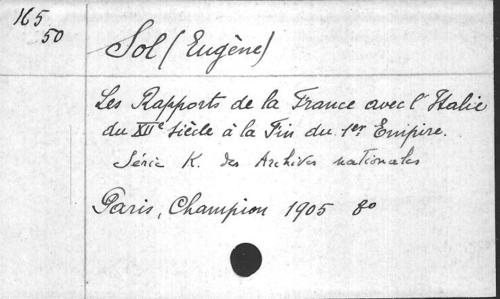 165
50
Sol (Eugène)
Les Rapports de la France avec l'Italie
du XIIe siècle à la Fin du 1er Empire.
Série K. des Archives nationales
Paris, Champion 1905 8o